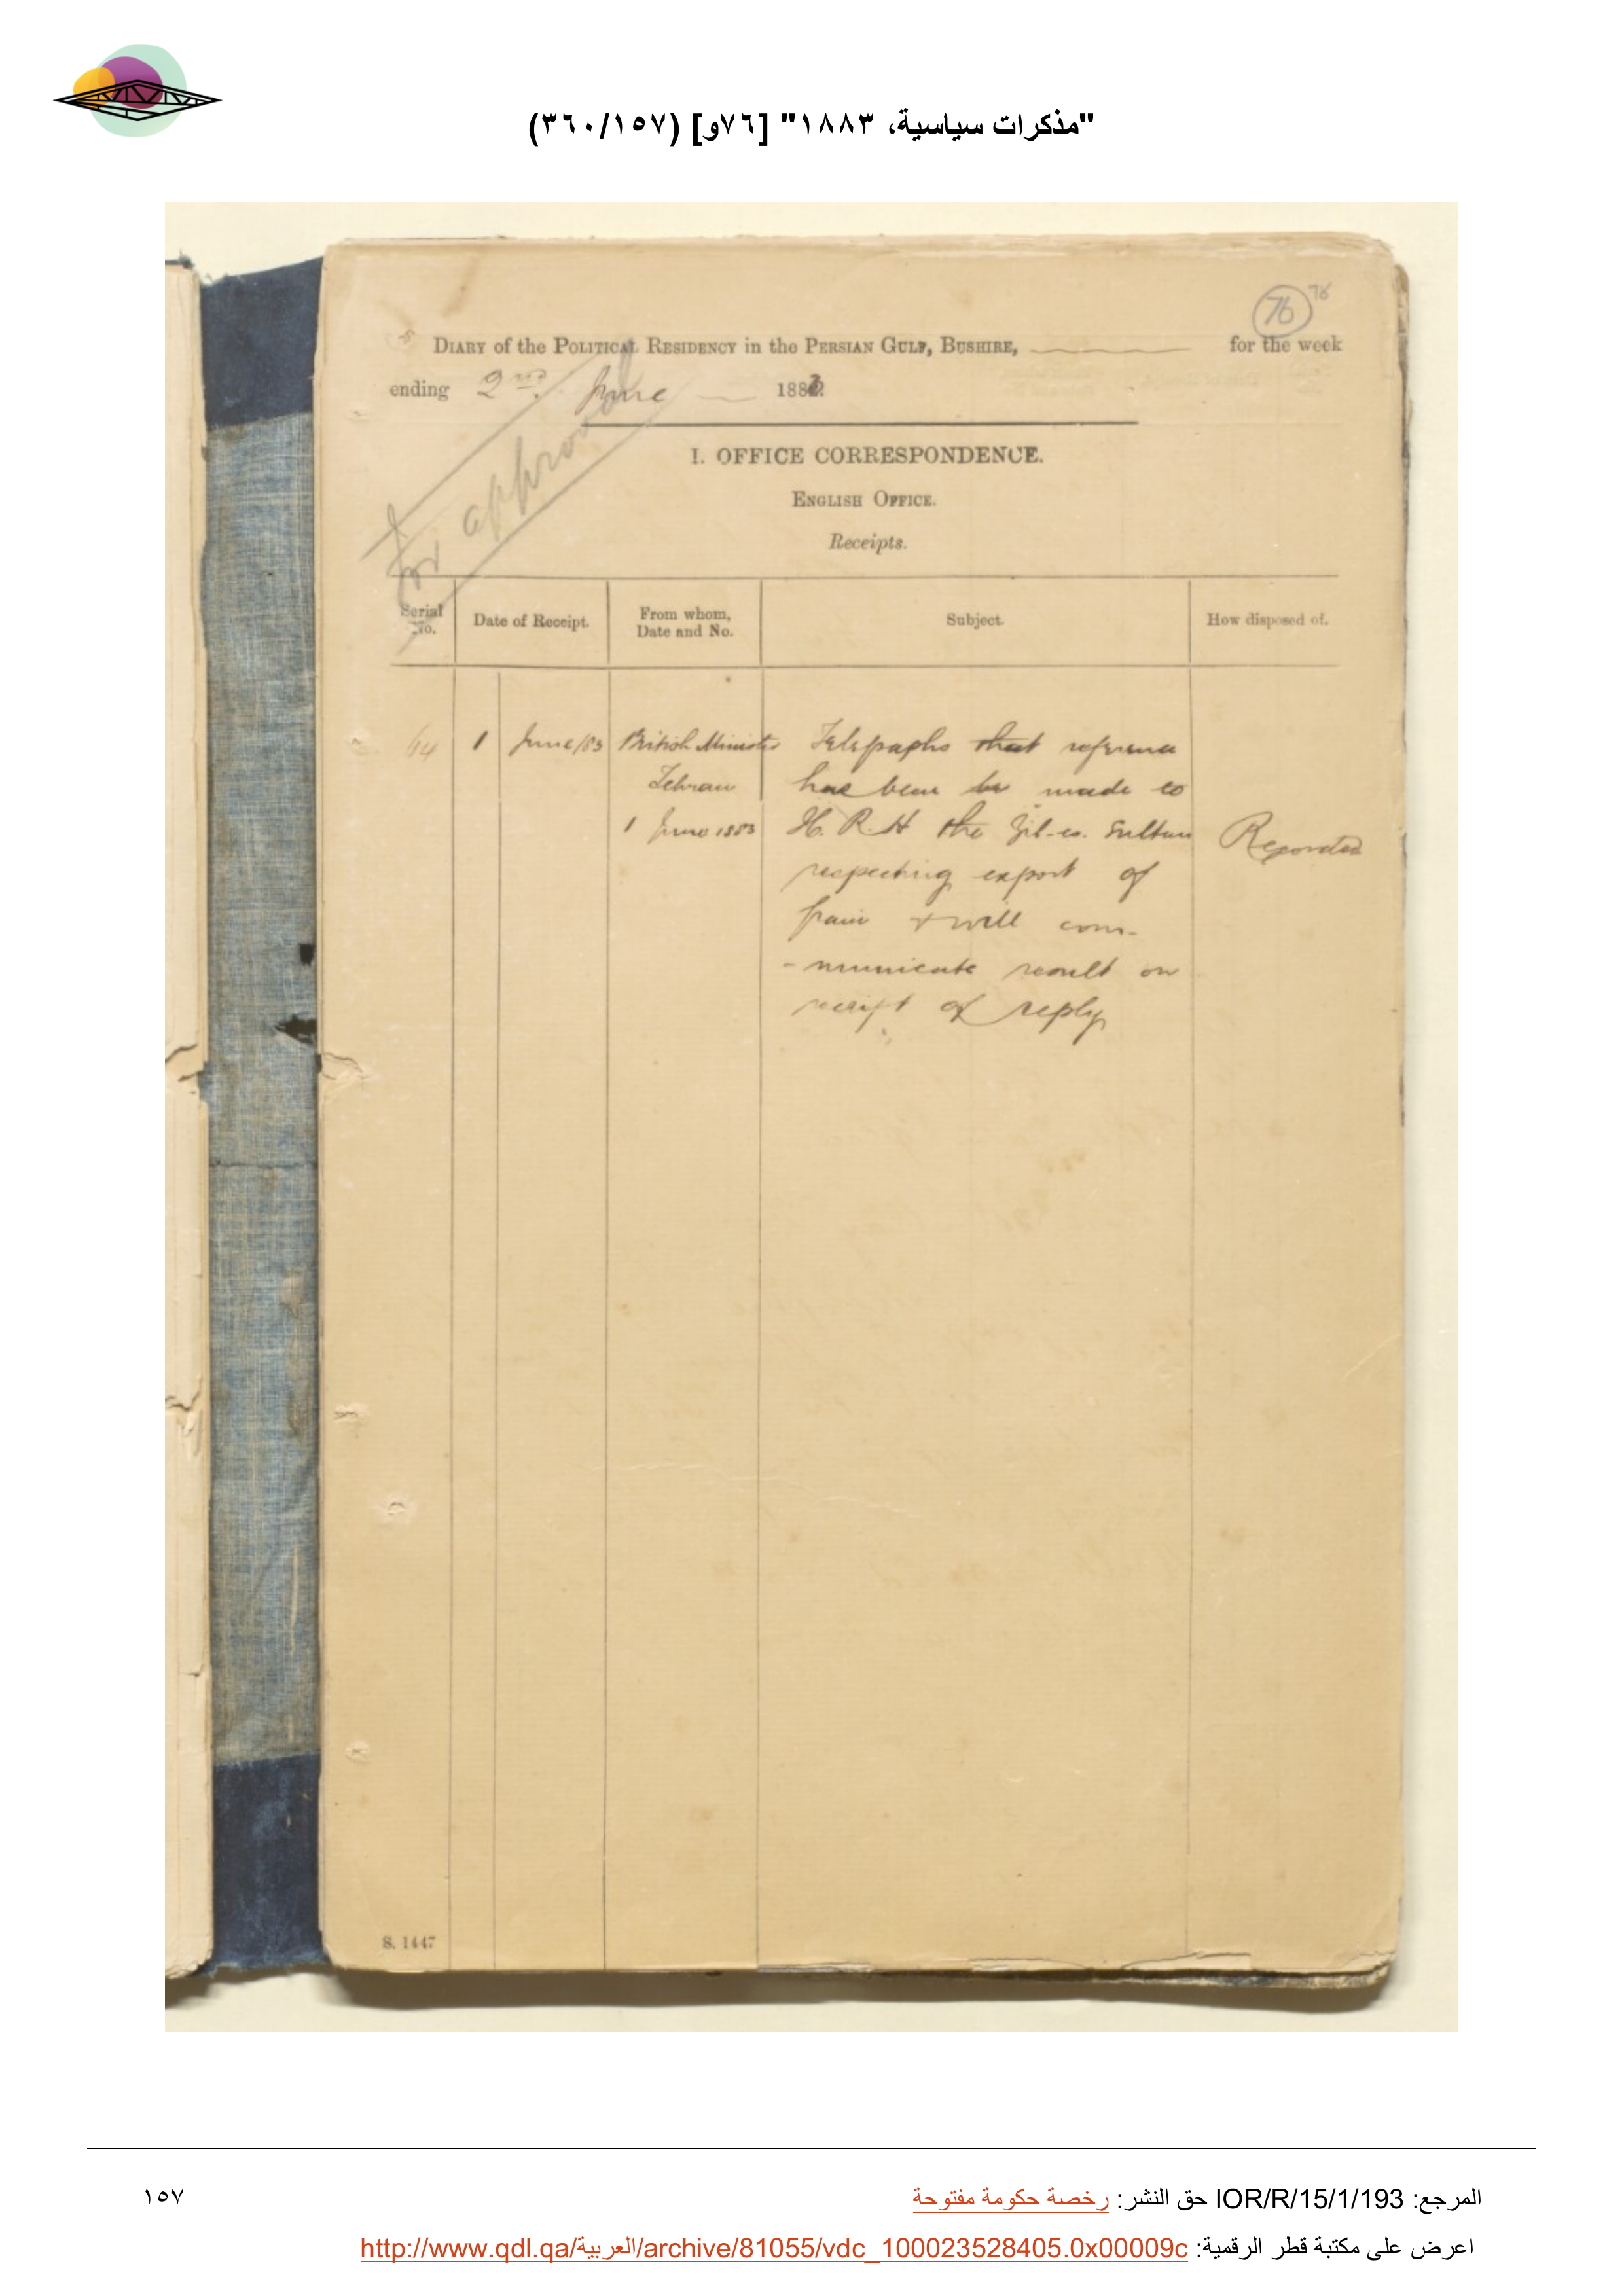 "مذكرات سياسية، ١٨٨٣" [٧٦و] (٣٦٠/١٥٧)
76 76
DIARY of the POLITICAL RESIDENCY in the PERSIAN GULF, BUSHIRE, for the week
ending 2nd June 1883
For approval
I. OFFICE CORRESPONDENCE.
ENGLISH OFFICE.
Receipts.
Serial No. Date of Receipt. From whom, Date and No. Subject. How disposed of.
64 1 June/83 British Minister Telegraphs that reference
Tehran has been be made to
1 June 1883 H. R. H the Zil-es. Sultan Recorded
respecting export of
grain & will com-
-municate result on
receipt of reply
S. 1447
المرجع: IOR/R/15/1/193 حق النشر: رخصة حكومة مفتوحة
١٥٧
اعرض على مكتبة قطر الرقمية: http://www.qdl.qa/العربية/archive/81055/vdc_100023528405.0x00009c